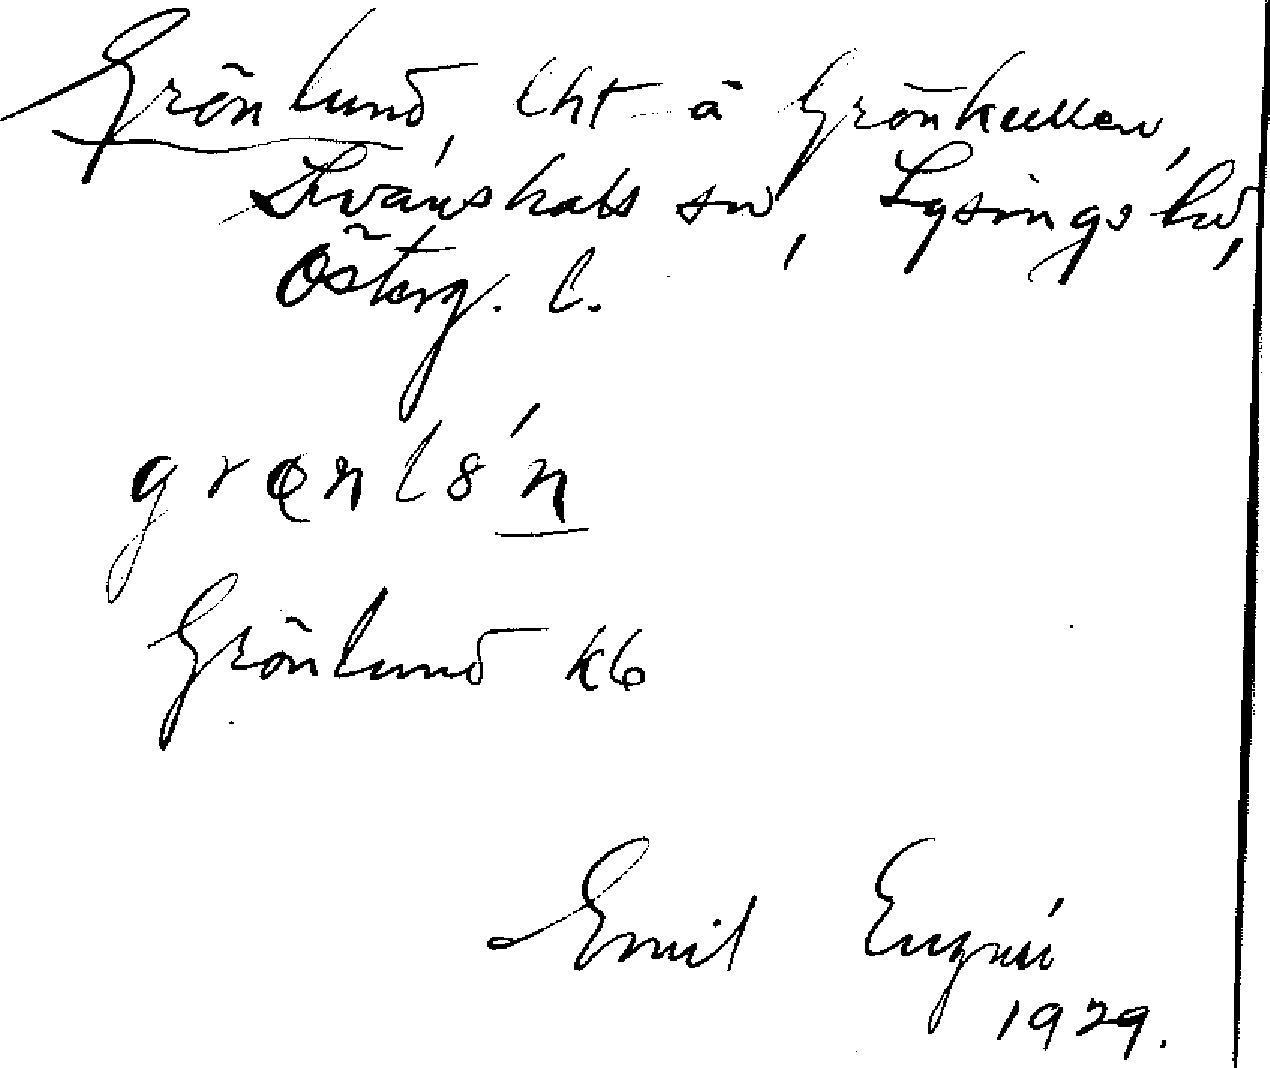 Grönlund, lht å Grönkullen,
Svanshals sn, Lysings hd,
Österg. l.
grɵnlsń
Grönlund kb
Emil
1929.